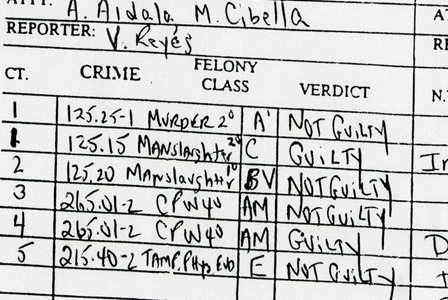 ATTY: A. Aidala M. Cibella
REPORTER: V. Reyes
CT. CRIME FELONY CLASS VERDICT
1 125.25-1 MURDER 2° A' NOT GUILTY
1 125.15 Manslaughter 2° C GUILTY
2 125.20 Manslaughter 1° BV NOT GUILTY
3 265.01-2 CPW4° AM NOT GUILTY
4 265.01-2 CPW4° AM GUILTY
5 215.40-2 TAMP. Phys EVD E NOT GUILTY